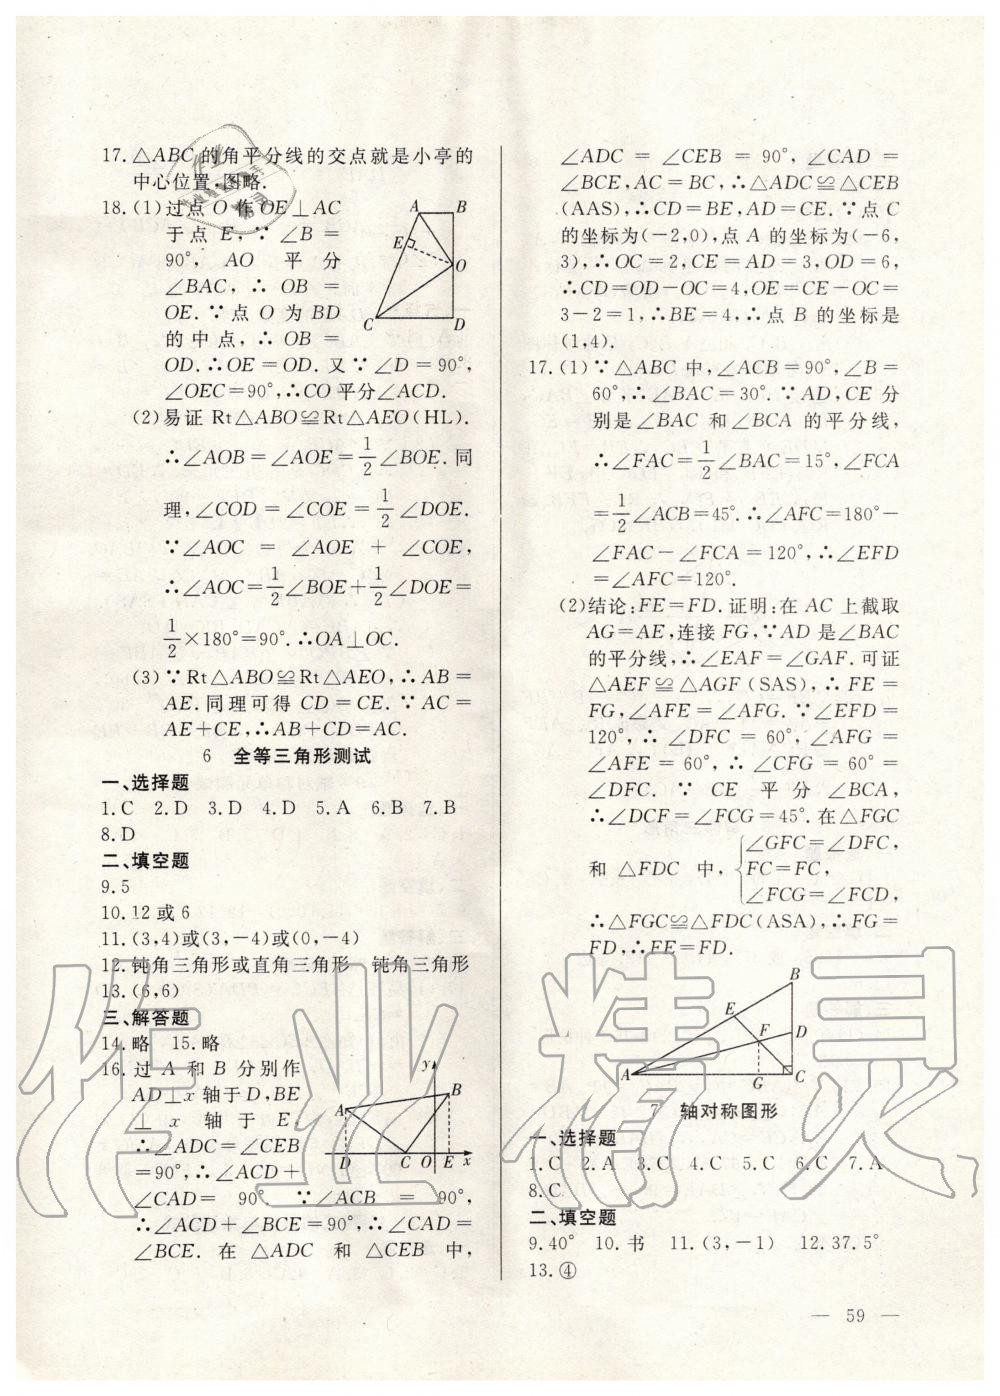 17.△ABC的角平分线的交点就是小亭的
中心位置,图略.
18.(1)过点O作OE⊥AC
于点E,∵∠B=
90°,AO平分
∠BAC,∴OB=
OE.∵点O为BD
的中点,∴OB=
OD.∴OE=OD.又∵∠D=90°,
∠OEC=90°,∴CO平分∠ACD.
A B
E
O
C D
(2)易证Rt△ABO≌Rt△AEO(HL).
∴∠AOB=∠AOE=1/2∠BOE.同
理,∠COD=∠COE=1/2∠DOE.
∵∠AOC=∠AOE+∠COE,
∴∠AOC=1/2∠BOE+1/2∠DOE=
1/2×180°=90°.∴OA⊥OC.
(3)∵Rt△ABO≌Rt△AEO,∴AB=
AE.同理可得CD=CE.∵AC=
AE+CE,∴AB+CD=AC.
6 全等三角形测试
一、选择题
1.C 2.D 3.D 4.D 5.A 6.B 7.B
8.D
二、填空题
9.5
10.12或6
11.(3,4)或(3,-4)或(0,-4)
12.钝角三角形或直角三角形 钝角三角形
13.(6,6)
三、解答题
14.略 15.略
16.过A和B分别作
AD⊥x轴于D,BE
⊥x轴于E.
∴∠ADC=∠CEB
=90°,∴∠ACD+
∠CAD=90°.∵∠ACB=90°,
∴∠ACD+∠BCE=90°,∴∠CAD=
∠BCE.在△ADC和△CEB中,
y
B
A
D C O E x
∠ADC=∠CEB=90°,∠CAD=
∠BCE,AC=BC,∴△ADC≌△CEB
(AAS),∴CD=BE,AD=CE.∵点C
的坐标为(-2,0),点A的坐标为(-6,
3),∴OC=2,CE=AD=3,OD=6,
∴CD=OD-OC=4,OE=CE-OC=
3-2=1,∴BE=4,∴点B的坐标是
(1,4).
17.(1)∵△ABC中,∠ACB=90°,∠B=
60°,∴∠BAC=30°.∵AD,CE分
别是∠BAC和∠BCA的平分线,
∴∠FAC=1/2∠BAC=15°,∠FCA
=1/2∠ACB=45°.∴∠AFC=180°-
∠FAC-∠FCA=120°,∴∠EFD
=∠AFC=120°.
(2)结论:FE=FD.证明:在AC上截取
AG=AE,连接FG,∵AD是∠BAC
的平分线,∴∠EAF=∠GAF.可证
△AEF≌△AGF(SAS),∴FE=
FG,∠AFE=∠AFG.∵∠EFD=
120°,∴∠DFC=60°,∠AFG=
∠AFE=60°,∴∠CFG=60°=
∠DFC.∵CE平分∠BCA,
∴∠DCF=∠FCG=45°.在△FGC
和△FDC中,{∠GFC=∠DFC,
FC=FC,
∠FCG=∠FCD,
∴△FGC≌△FDC(ASA),∴FG=
FD,∴FE=FD.
B
E
F D
A G C
7 轴对称图形
一、选择题
1.C 2.A 3.C 4.C 5.C 6.C 7.A
8.C
二、填空题
9.40° 10.书 11.(3,-1) 12.37.5°
13.④
— 59 —
作业精灵